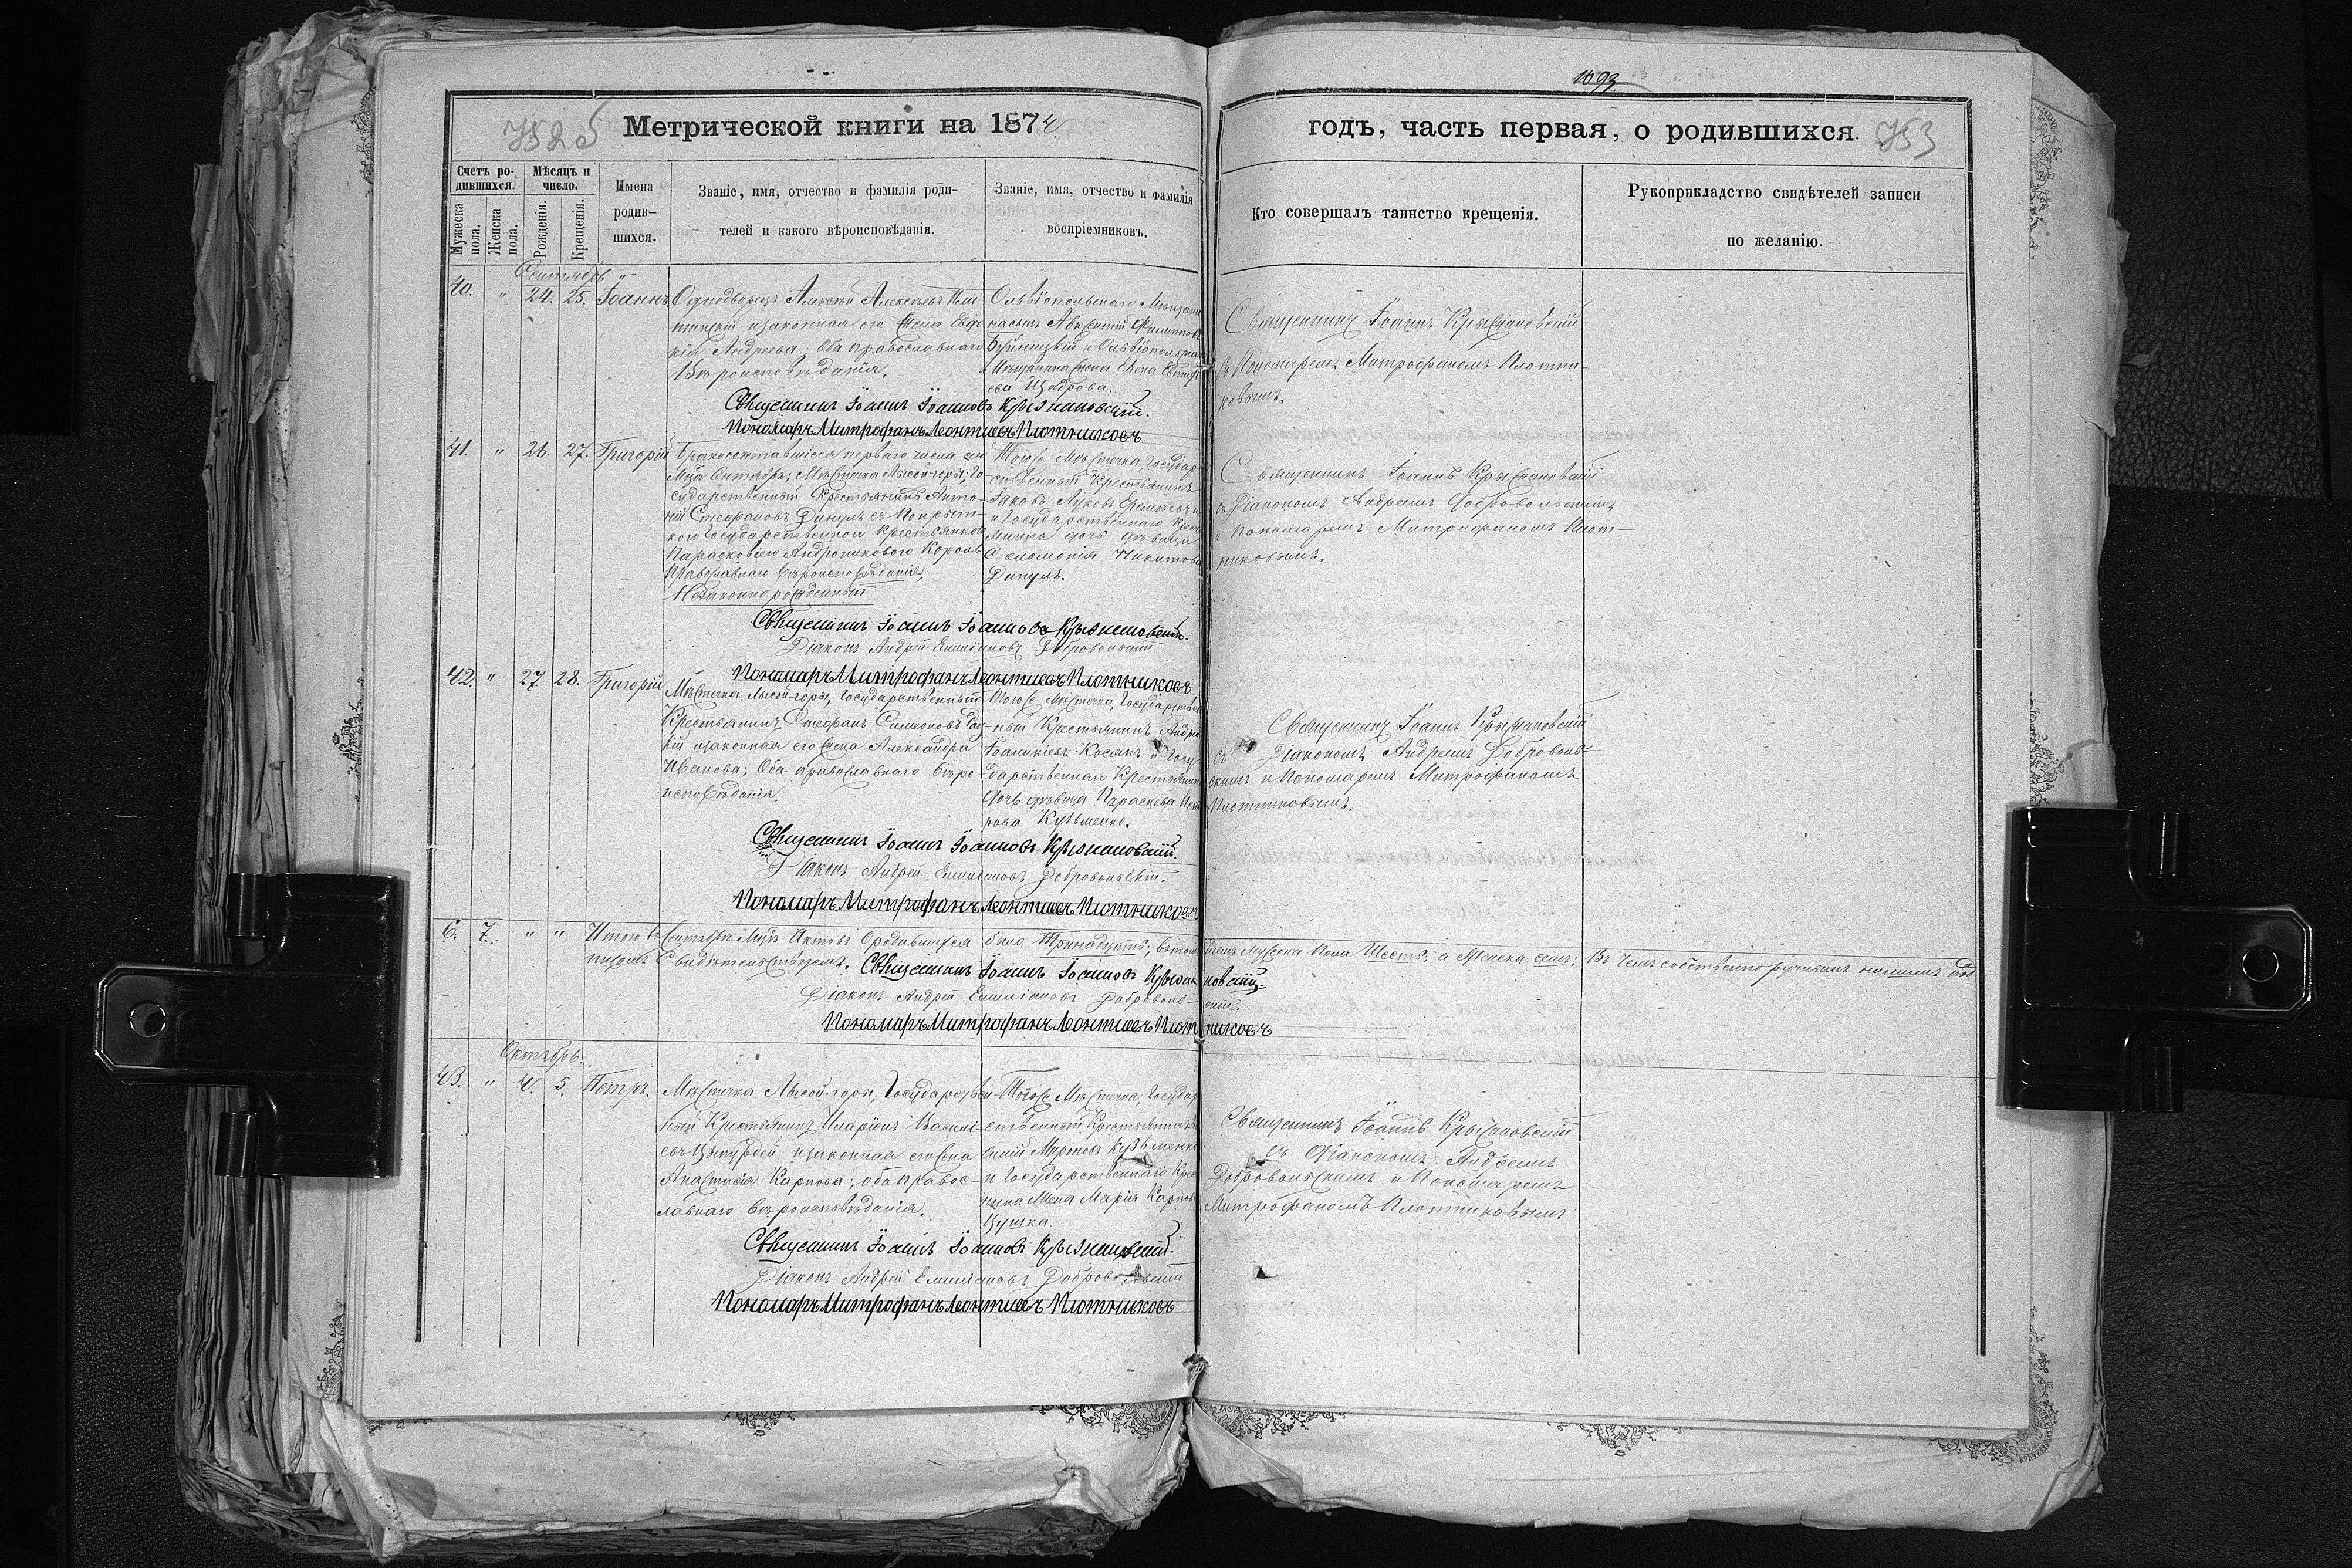 1093
Метрической книги на 1874
годъ, часть первая, о родившихся.
753
Счетъ ро-
дившихся.
Мужеска
пола.
Женска
пола.
Мѣсяцъ и
число.
Рожденія.
Крещенія.
Имена
родив-
шихся.
Званіе, имя, отчество и фамилія роди-
телей и какого вѣроисповѣданія.
Званіе, имя, отчество и фамилія
воспріемниковъ.
Кто совершалъ таинство крещенія.
Рукоприкладство свидѣтелей записи
по желанію.
Сентябрь
40. " 24. 25. Іоаннъ
Однодворецъ Алексѣй Алексѣевъ
и законная его жена Евдо
кія Андреева; Оба православнаго
Вѣроисповѣданія.
Ольвіопольскаго Мѣщани
Филиппов
и Ольвіопольска
Мѣщанина жена Елена
Щедрова.
Священникъ Іоаннъ Крыжановскій
съ Пономаремъ Митрофаномъ Плотни-
ковымъ.
Священникъ Іоаннъ Іоанновъ Крыжановскій.
Пономаръ Митрофанъ Леонтиевъ Плотниковъ
41. " 26. 27. Григорій
Бракосочетавшіеся перваго числа сего
Мца Октября; Мѣстечка Лысой-горы, Го-
сударственный Крестьянинъ Анто-
ній Стефановъ Дикулъ съ Покрыт-
кою Государственною Крестьянкою
Параскевіею Андрониковою Король
Православнаго Вѣроисповѣданія,
Незаконнорожденный
Тогоже Мѣстечка, Государ-
ственный Крестьянинъ
Іаковъ Луковъ
и Государственнаго Кресть
янина дочь дѣвица
Соломонія Никитова
Дикулъ.
Священникъ Іоаннъ Крыжановскій
съ Діакономъ Андреемъ Добровольскимъ
и Пономаремъ Митрофаномъ Плот-
никовымъ.
Священникъ Іоаннъ Іоанновъ Крыжановскій.
Діаконъ Андрей Емиліановъ Добровольскій
Пономаръ Митрофанъ Леонтиевъ Плотниковъ
42. " 27. 28. Григорій
Мѣстечка Лысой-горы, Государственный
Крестьянинъ Стефанъ Симеоновъ
кій и законная его жена Александра
Иванова; Оба православнаго Вѣро-
исповѣданія.
Тогоже Мѣстечка, Государствен
ный Крестьянинъ Андрей
Іоанникіевъ Косякъ и Госу-
дарственнаго Крестьянина
дочь дѣвица Параскева
рова Кузьменко.
Священникъ Іоаннъ Крыжановскій
съ Діакономъ Андреемъ Добровольс-
скимъ и Пономаремъ Митрофаномъ
Плотниковымъ.
Священникъ Іоаннъ Іоанновъ Крыжановскій.
Діаконъ Андрей Емиліановъ Добровольскій.
Пономаръ Митрофанъ Леонтиевъ Плотниковъ
6. 7. " " Итого въ Сентябрѣ Мцѣ Актовъ О родившихся было Тринадцать; въ томъ числѣ мужеска пола Шесть; а Женска семь; Въ чемъ собственноручнымъ нашимъ под-
писомъ Свидѣтельствуемъ. Священникъ Іоаннъ Іоанновъ Крыжановскій.
Діаконъ Андрей Емиліановъ Добровольскій.
Пономаръ Митрофанъ Леонтиевъ Плотниковъ
Октябрь
43. " 4. 5. Петръ.
Мѣстечка Лысой-горы, Государствен-
ный Крестьянинъ Иларіонъ Василі-
евъ и законная его жена
Анастасія Карпова; оба правос-
лавнаго вѣроисповѣданія.
Тогоже Мѣстечка, Государ
ственный Крестьянинъ
Мартовъ Кузьменко
и Государственнаго Кресть
янина жена Марія Карпова
Цушка.
Священникъ Іоаннъ Крыжановскій
съ Діакономъ Андреемъ
Добровольскимъ и Пономаремъ
Митрофаномъ Плотниковымъ
Священникъ Іоаннъ Іоанновъ Крыжановскій.
Діаконъ Андрей Емиліановъ Добровольскій
Пономаръ Митрофанъ Леонтиевъ Плотниковъ